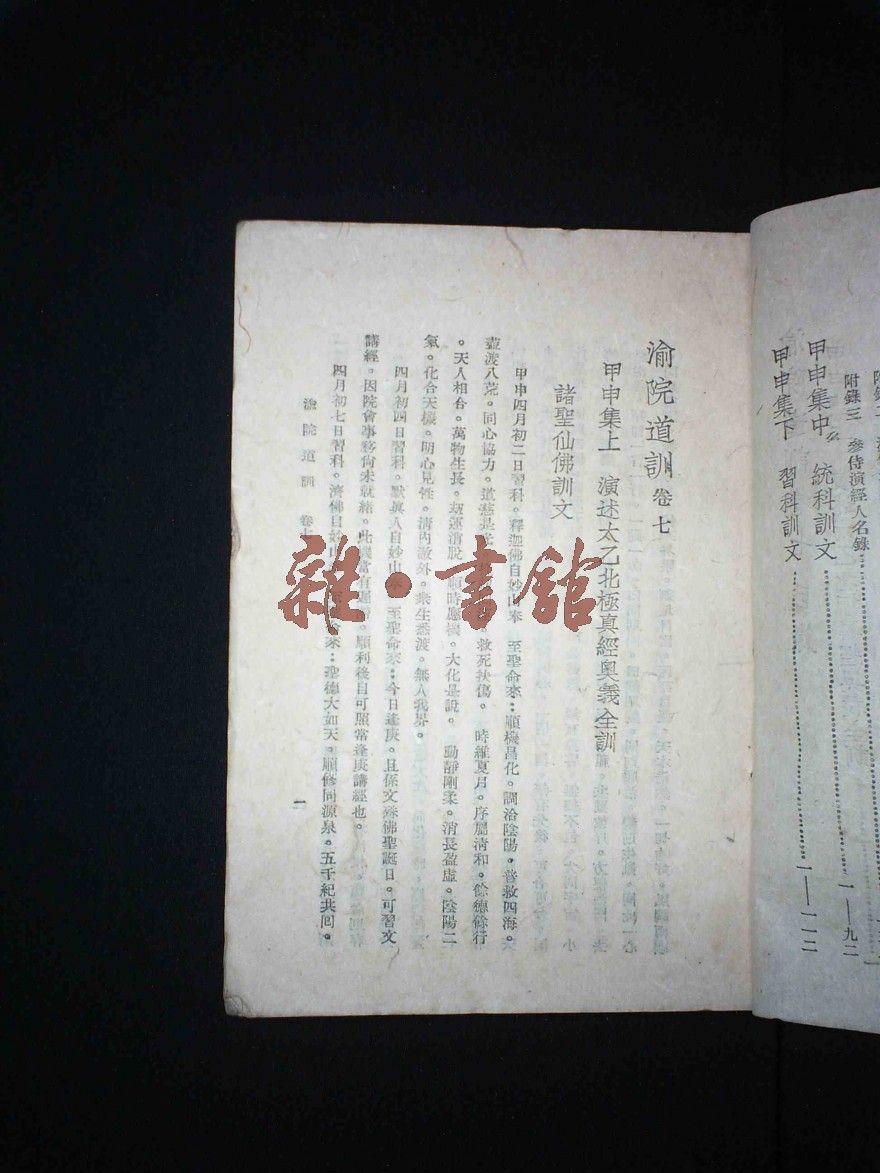 附錄三　參侍演經人名錄
甲申集中　統科訓文………………一—九二
甲申集下　習科訓文………………一—一一二
渝院道訓 卷七
甲申集上　演述太乙北極真經奧義全訓
諸聖仙佛訓文
甲申四月初二日習科。釋迦佛自妙山奉　至聖命來：順機昌化。調洽陰陽。普救四海。
壺渡八荒。同心協力。道慈是　救死扶傷。　時維夏月。序屬清和。餘德餘行
。天人相合。萬物生長。刼運消脫。順時應機。大化是說。　動靜剛柔。消長盈虛。陰陽二
氣。化合天機。明心見性。清內澈外。衆生悉渡。無人我界。
四月初四日習科。默真人自妙山奉　至聖命來：今日逢庚。且係文殊佛聖誕日。可習文
講經。因院會事務尚未就緒。此　當有　順利後自可照常逢庚講經也。
四月初七日習科。濟佛自妙山　命來：聖德大如天。順修同源泉。五千紀共囘。
渝院道訓　卷七
一
雜·書館